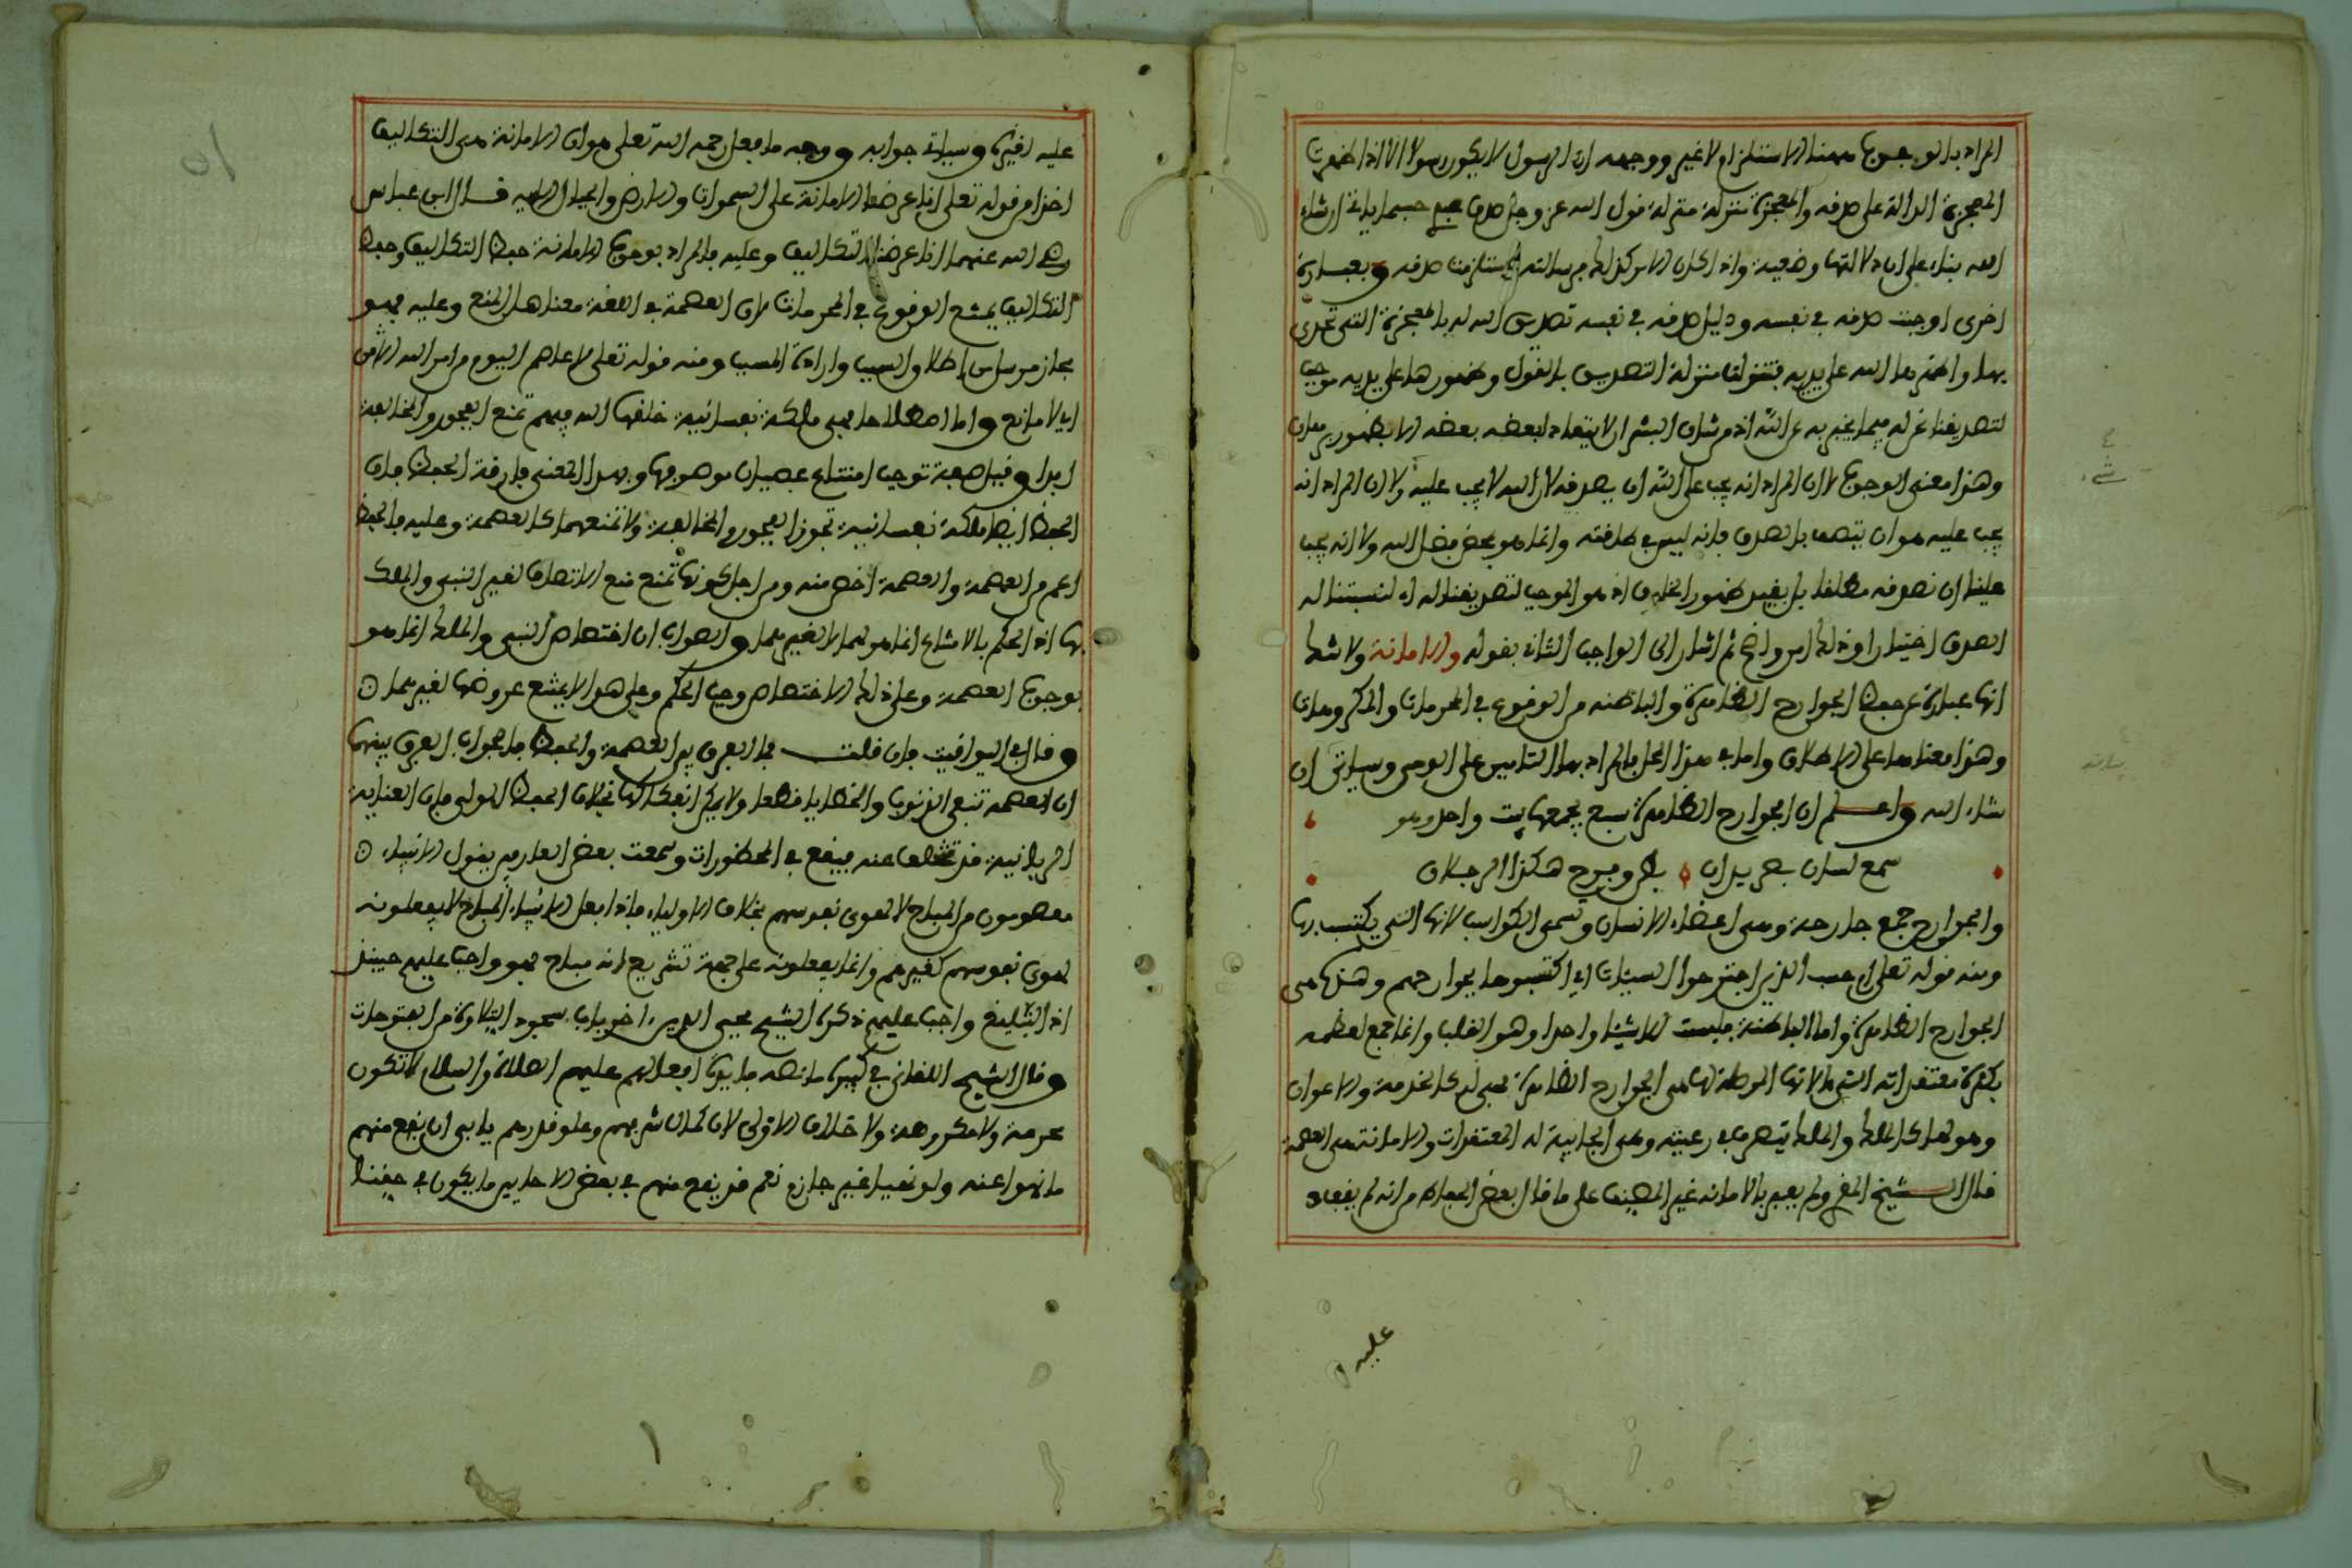 المراد بالوجوب مهنا الاستلزام لا غير ووجهه ان الرسول لا يكون رسولا الا اذا ظهرت
المعجزة الدالة على صدقه والمعجزة تتنزل منزلة قول الله عز وجل صدق عبدي حسبما ياتي ان شاء
الله بناء على ان دلالتها وضعية واذا كان الامر كذلك فرسالته استلزمت صدقه وبعبارة
اخرى اوجبت صدقه في نفسه ودليل صدقه في نفسه تصديق الله له بالمعجزة التي تحدى
بها واظهرها الله على يديه فتنزلت منزلة التصديق بالقول وظهورها على يديه موجب
لتصديقنا له فيما يخبر به عن الله اذ من شان البشر ان لا ينقاد لبعضه بعضه الا بظهور
وهذا معنى الوجوب لا ان المراد انه يجب على الله ان يصدقه لان الله لا يجب عليه ولا ان المراد انه
يجب عليه هو ان يتصف بالصدق فانه ليس في طاقته وانما هو بمحض فضل الله ولا انه يجب
علينا ان نصدقه مطلقا بل بقيد ظهور الخارق اذ هو الموجب لتصديقنا له اي لنسبتنا له
الصدق اختيارا وذلك امر واضح ثم اشار الى الواجب الثاني بقوله والامانة ولا شك
انها عبارة عن حفظ الجوارح الظاهرة والباطنة من الوقوع في المحرمات والمكروهات
وهذا معناها على الاطلاق واما في هذا المحل فالمراد بها التامين على الوحي وسياتي ان
شاء الله واعلم ان الجوارح الظاهرة سبع يجمعها بيت واحد وهو
سمع لسان بصر يدان بطن وفرج هكذا الرجلان
والجوارح جمع جارحة وهي اعضاء الانسان وتسمى الكواسب لانها التي يكتسب بها
ومنه قوله تعالى ام حسب الذين اجترحوا السيئات اي اكتسبوها بجوارحهم وهذه هي
الجوارح الظاهرة واما الباطنة فليست الا شيئا واحدا وهو القلب وانما جمع لعظمه
بكثرة معتقداته التي الاتها الموصلة لها هي الجوارح الظاهرة فهي له كالخدمة والاعوان
وهو لها كالملك والملك يتصرف في رعيته وهي الجالبة له المعتقدات والامانة هي العصمة
قال الشيخ المقري ولم يعبر بالامانة غير المصنف على ما قال بعض الحفاظ من انه لم يقف
عليه ا
عليه لغيره وسياتي جوابه ووجه ما فعل رحمه الله تعالى هو ان الامانة هي التكاليف
اخذا من قوله تعالى انا عرضنا الامانة على السموات والارض والجبال الاية قال ابن عباس
رضي الله عنهما انا عرضنا التكاليف وعليه فالمراد بوجوب الامانة حفظ التكاليف وحفظ
التكاليف يمنع الوقوع في المحرمات لان العصمة في اللغة معناها المنع وعليه فهو
مجاز مرسل من اطلاق السبب وارادة المسبب ومنه قوله تعالى لا عاصم اليوم من امر الله الا من
اي لا مانع واما اصطلاحا فهي ملكة نفسانية خلقها الله فيهم تمنع الفجور والمخالفة
ابدا وقيل صفة توجب امتناع عصيان موصوفها وبهذا المعنى فارقة الحفظ فان
الحفظ ايضا ملكة نفسانية تجوز الفجور والمخالفة ولا تمنعهما كالعصمة وعليه فالحفظ
اعم من العصمة والعصمة اخص منه ومن اجل كونها تمنع منع الاتصاف لغير النبي والملك
بها اذ الحكم بالامتناع انما هو لهما لا لغيرهما والصواب ان اختصاص النبي والملك انما هو
بوجوب العصمة وعلى ذلك الاختصاص وجب الحكم وعلى هو لا يمتنع عروضها لغيرهما
وقال في اليواقيت فان قلت فما الفرق بين العصمة والحفظ فالجواب الفرق بينهما
ان العصمة تنفي الذنوب والخطايا قطعا ولا يمكن انفكاكها بخلاف الحفظ الولي فان العناية
الربانية قد تتخلف عنه فيقع في المحظورات وسمعت بعض العارفين يقول الانبياء
معصومون من المباح لا لهوى نفوسهم بخلاف الاولياء فاذا فعل الانبياء المباح لا يفعلونه
لهوى نفوسهم كغيرهم وانما يفعلونه على جهة تشريع انه مباح فهو واجب عليهم حينئذ
اذ التبليغ واجب عليهم ذكره الشيخ محيي الدين اخر باب سجود التلاوة من الفتوحات
وقال الشيخ اللقاني في كبيره ما نصه فائدة افعالهم عليهم الصلاة والسلام لا تكون
محرمة ولا مكروهة ولا خلاف الاولى لان كمال شرفهم وعلو قدرهم يابى ان يقع منهم
ما نهوا عنه ولو نهيا غير جازم نعم قد يقع منهم في بعض الاحايين ما يكون في حقنا